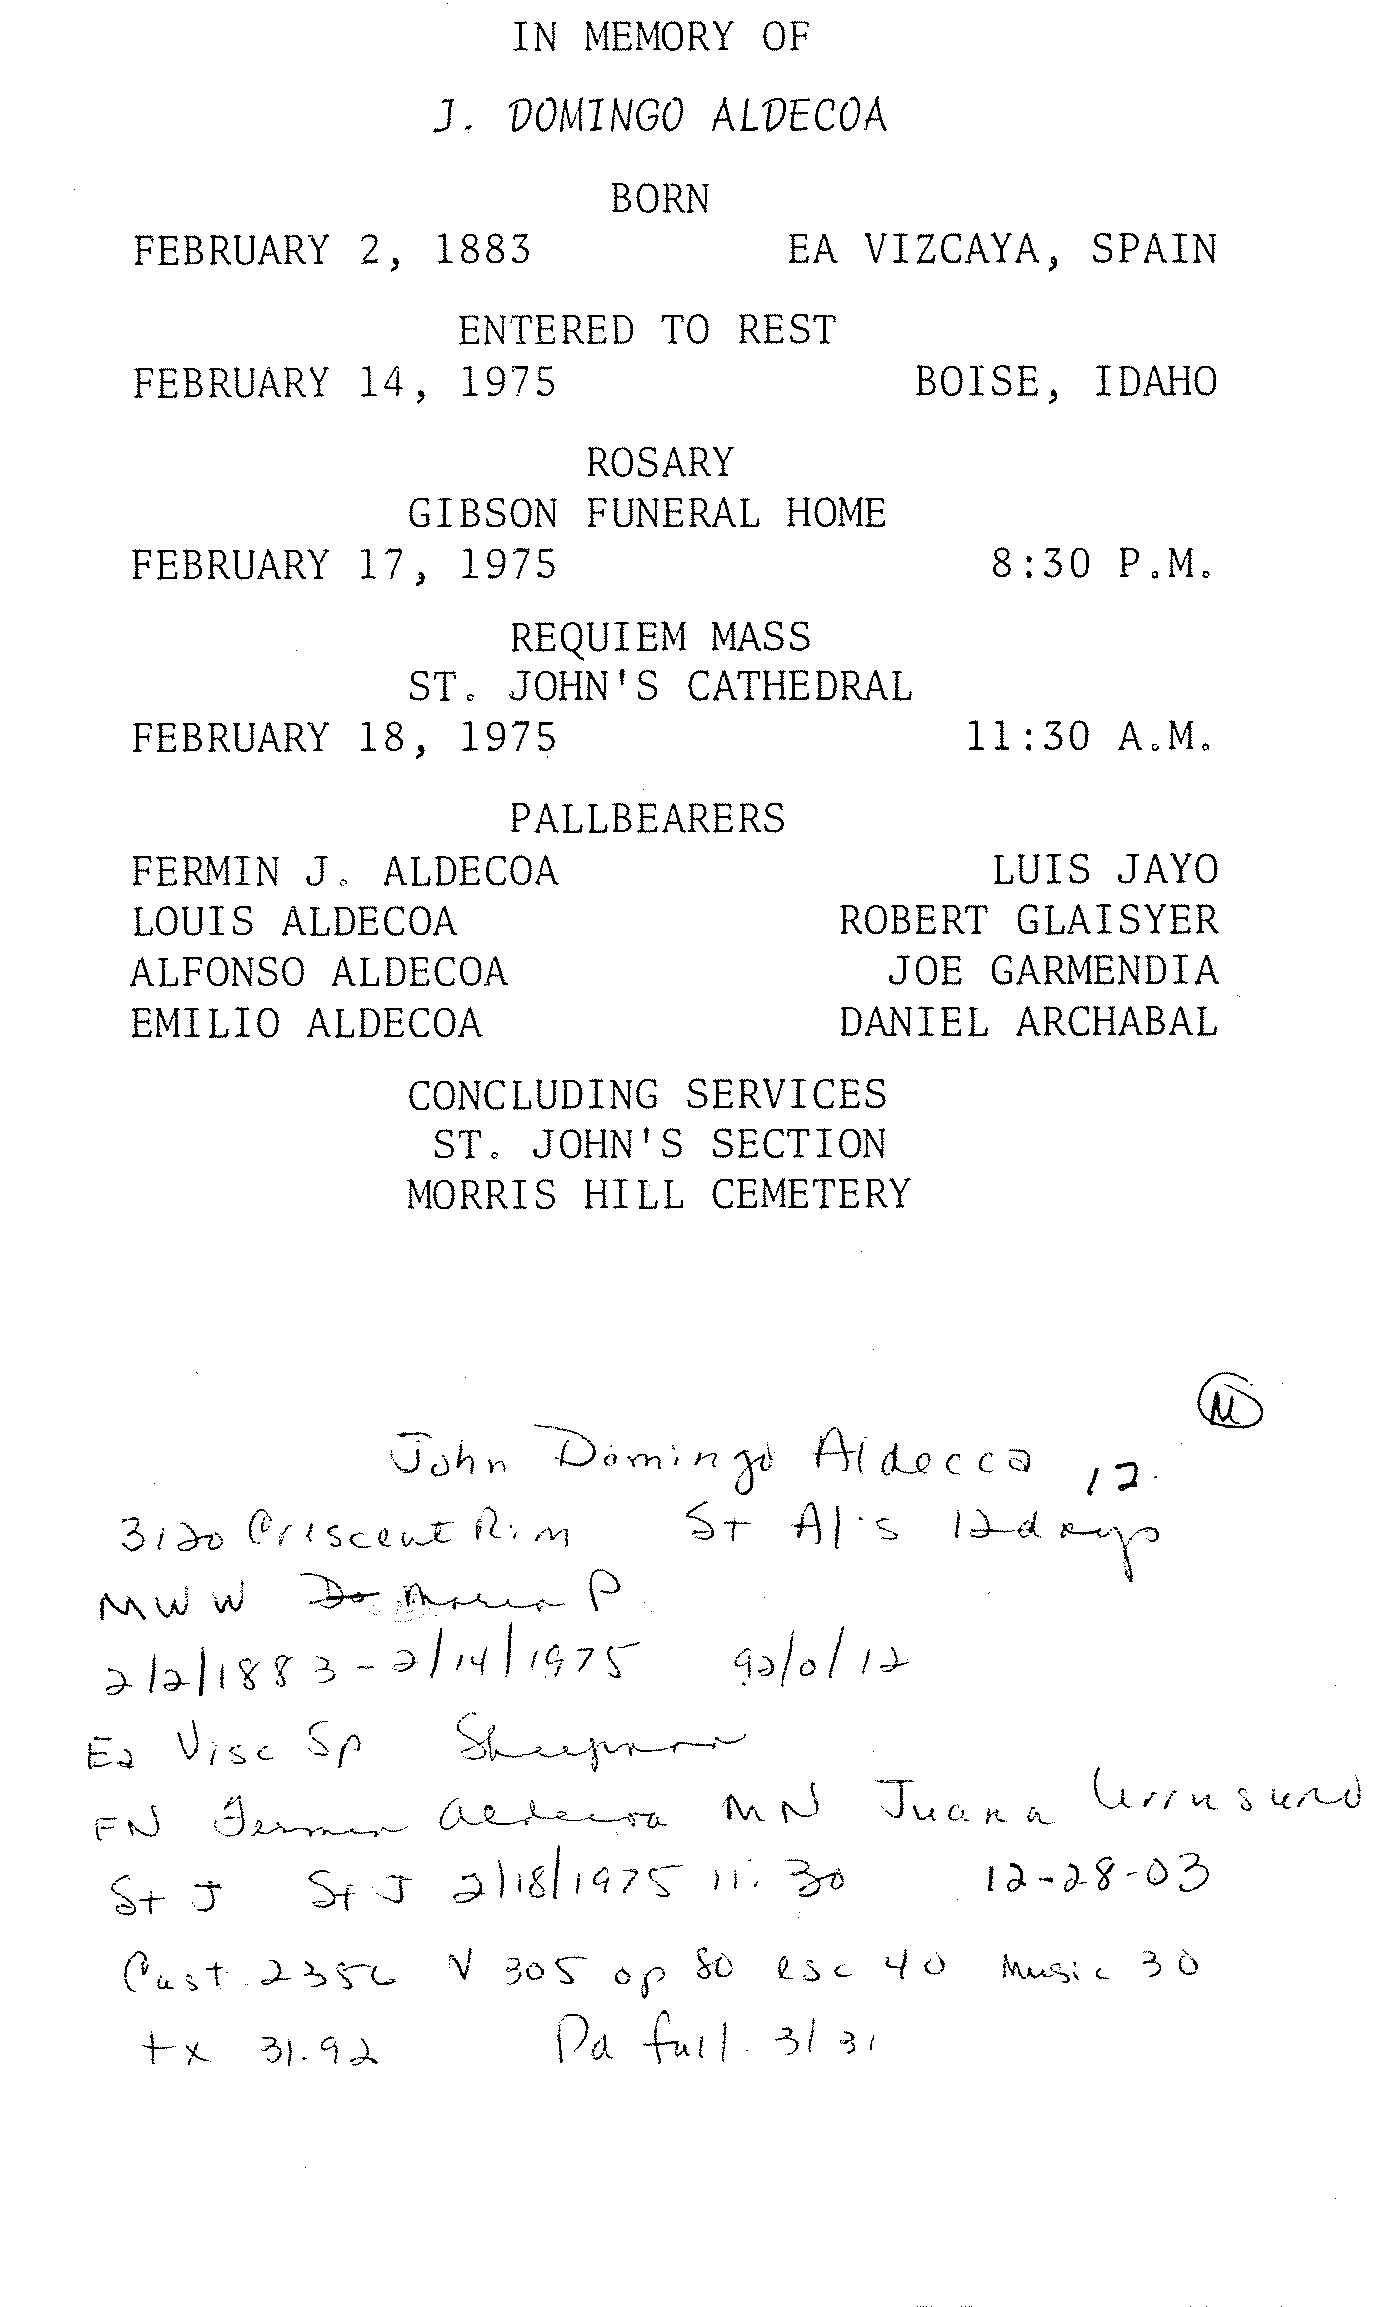 IN MEMORY OF
J. DOMINGO ALDECOA
BORN
FEBRUARY 2, 1883 EA VIZCAYA, SPAIN
ENTERED TO REST
FEBRUARY 14, 1975 BOISE, IDAHO
ROSARY
GIBSON FUNERAL HOME
FEBRUARY 17, 1975 8:30 P.M.
REQUIEM MASS
ST. JOHN'S CATHEDRAL
FEBRUARY 18, 1975 11:30 A.M.
PALLBEARERS
FERMIN J. ALDECOA LUIS JAYO
LOUIS ALDECOA ROBERT GLAISYER
ALFONSO ALDECOA JOE GARMENDIA
EMILIO ALDECOA DANIEL ARCHABAL
CONCLUDING SERVICES
ST. JOHN'S SECTION
MORRIS HILL CEMETERY
M
John Domingo Aldecca 12
3120 Criscent Rim St Al's 12 days
MWW Maria P
2/2/1883-2/14/1975 92/0/12
Ea Visc Sp Sheepman
FN Fermin Aldecoa MN Juana
St J St J 2/18/1975 11:30 12-28-03
Cast 2356 V 305 op 80 esc 40 Music 30
tx 31.92 Pd full 3/31